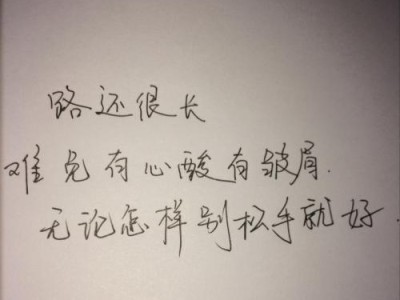 路还很长
难免有心酸有皱眉.
无论怎样别松手就好.